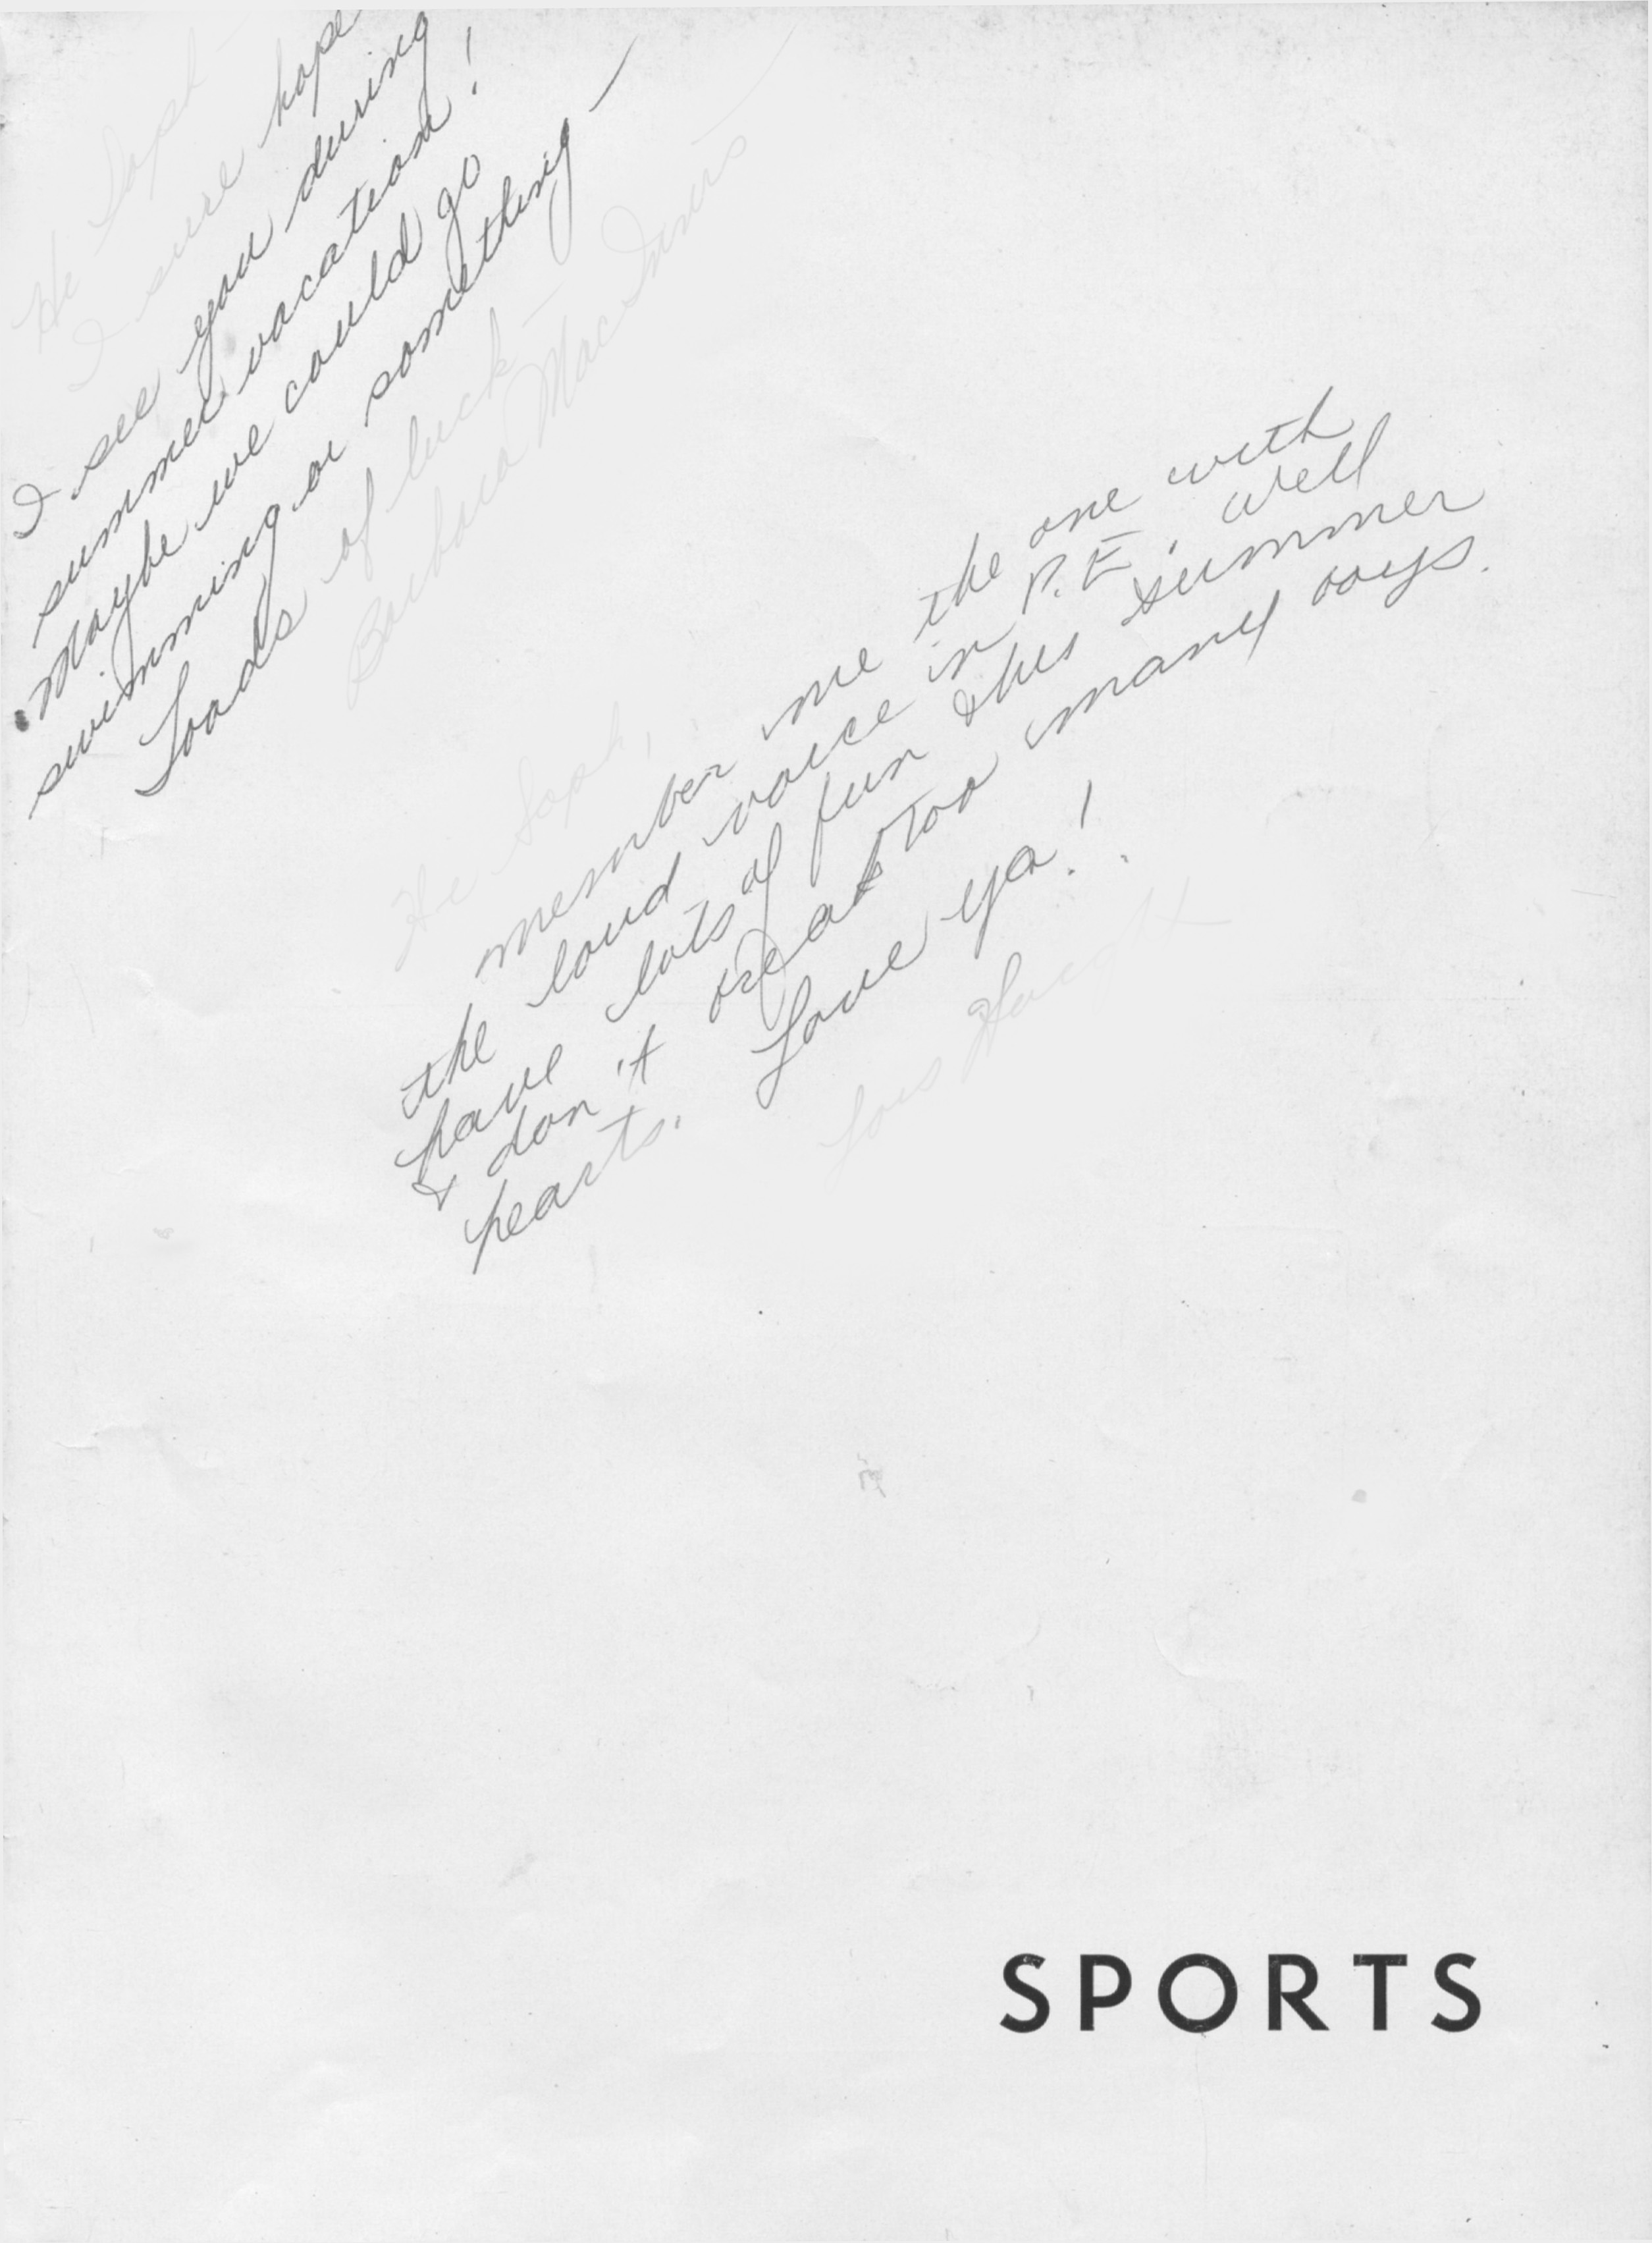 Hi Soph —
I sure hope
I see you during
summer vacation!
Maybe we could go
swimming or something —
Loads of luck —
Barbara MacInnis
Hi Soph,
member me the one with
the loud voice in P.E. Well
have lots of fun this summer
& don't break too many boys.
hearts. Love ya!
Lois
SPORTS